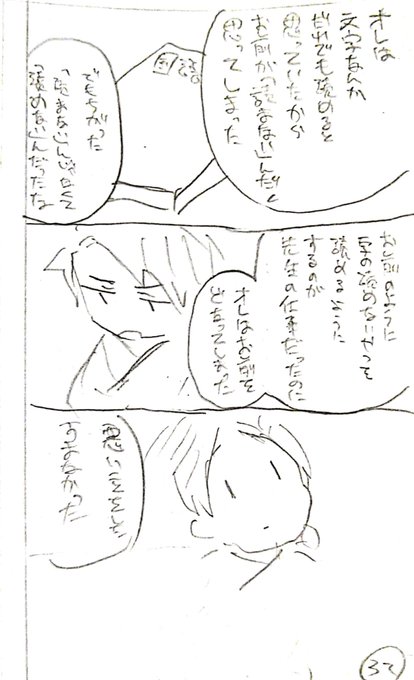 オレは
文字なんか
だれでも読めると
思っていたから
お前が「読まない」んだと
思ってしまった
国語
でもちがった
「読まない」んじゃなくて
「読めない」んだったな
お前のように
字の読めないやつを
読めるように
するのが
先生の仕事だったのに
オレはお前を
どなってしまった
悪いことをした
すまなかった
32